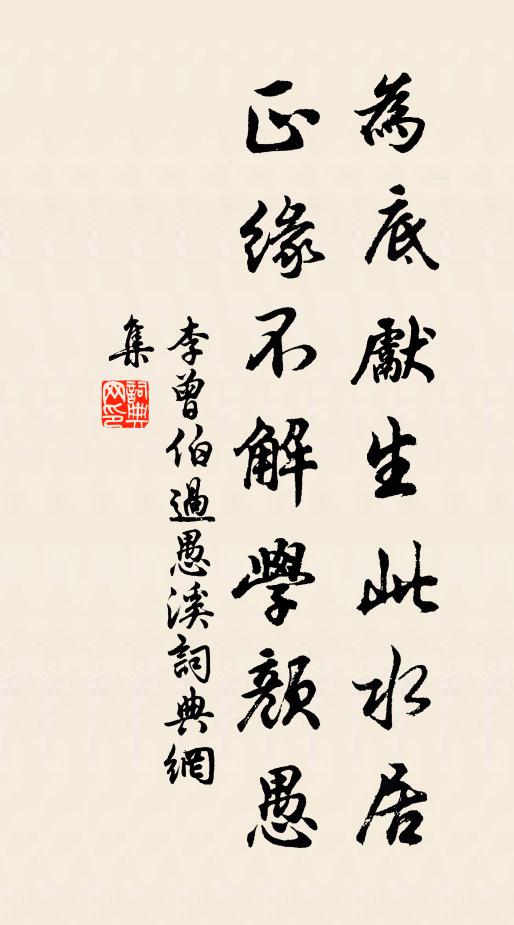 為底獻生此水居
正緣不解學顏愚
李曾伯過愚溪詞典網
集
詞典網印